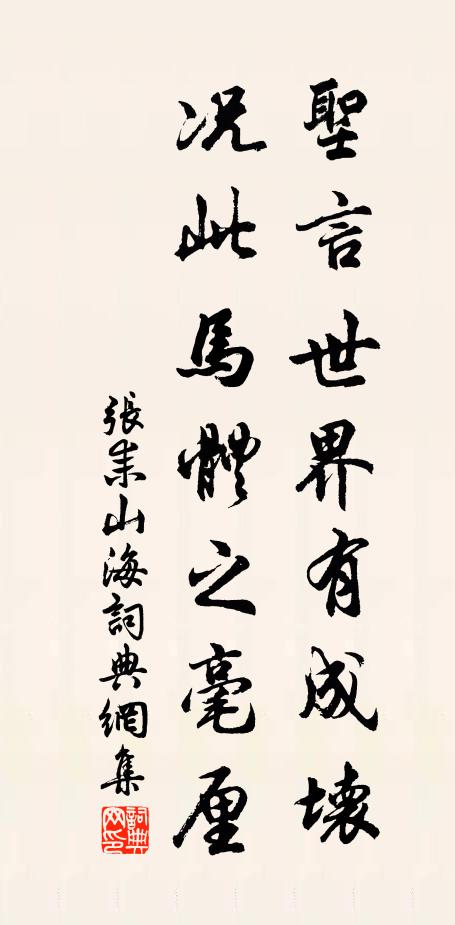 聖言世界有成壞
况此馬體之毫厘
張耒山海詞典網集
詞典網印